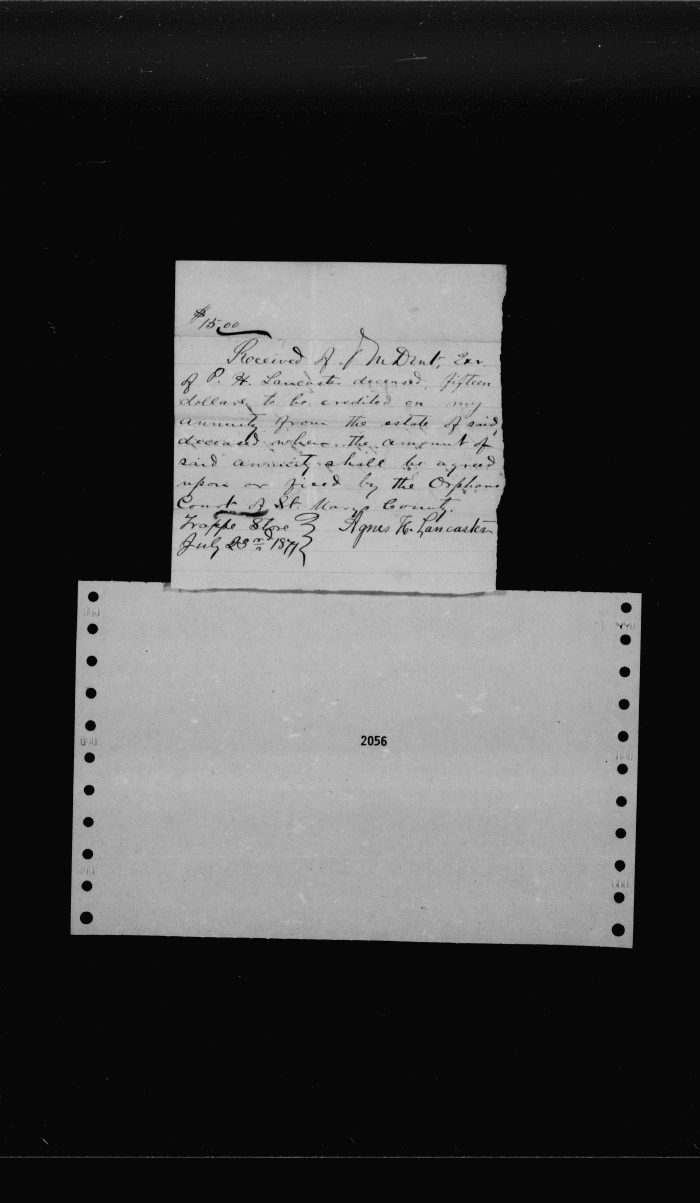 $15.00
Received of J M Dent, Exr.
of P. H. Lancaster deceased, fifteen
dollars to be credited on my
annuity from the estate of said
deceased when the amount of
said annuity shall be agreed
upon or fixed by the Orphans
Court of St. Marys County.
Trappe Store Agnes K. Lancaster
July 23rd 1871
2056